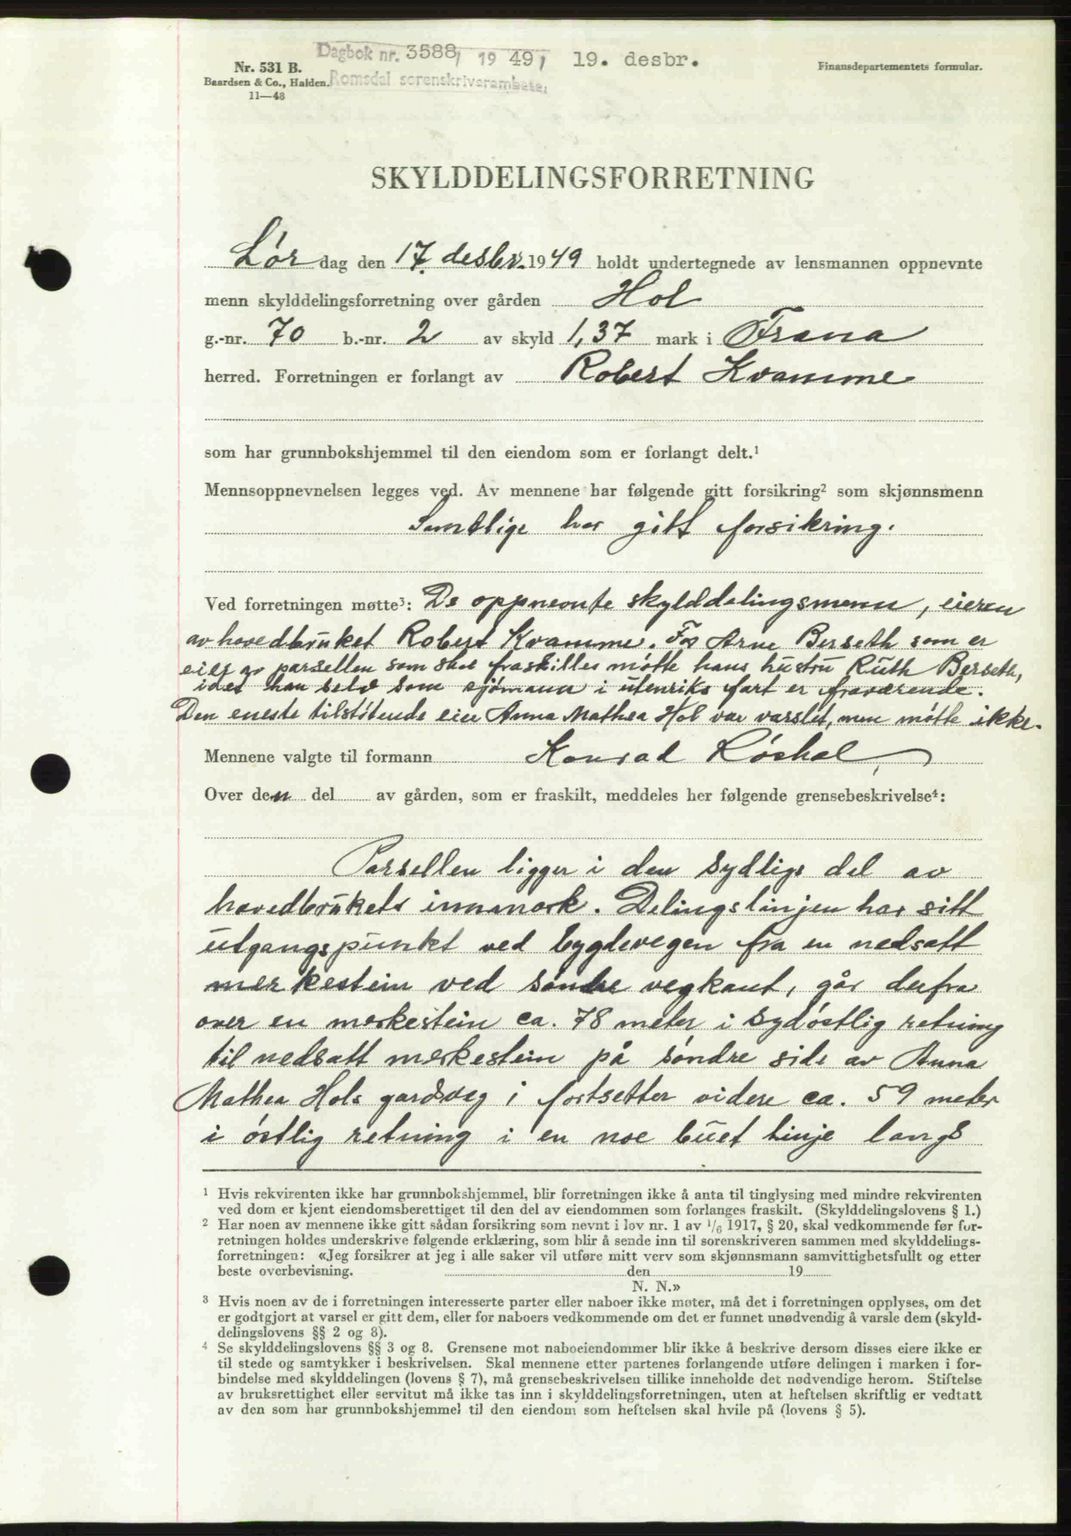 Dagbok nr. 3588, 1949, 19. desbr.
Romsdal sorenskriverembete,
Nr. 531 B.
Baardsen & Co., Halden.
11—48
Finansdepartementets formular.
SKYLDDELINGSFORRETNING
Lørdag den 17. desbr. 1949 holdt undertegnede av lensmannen oppnevnte
menn skylddelingsforretning over gården Hol
g.-nr. 70 b.-nr. 2 av skyld 1,37 mark i Fræna
herred. Forretningen er forlangt av Robert Kvamme
som har grunnbokshjemmel til den eiendom som er forlangt delt.¹
Mennsoppnevnelsen legges ved. Av mennene har følgende gitt forsikring² som skjønnsmenn
Samtlige har gitt forsikring.
Ved forretningen møtte³: De oppnevnte skylddelingsmenn, eieren
av hovedbruket Robert Kvamme. For Arne Berseth som er
eier av parsellen som skal fraskilles møtte hans hustru Ruth Berseth,
idet han selv som sjømann i utenriks fart er fraværende.
Den eneste tilstøtende eier Anna Mathea Hol var varslet, men møtte ikke.
Mennene valgte til formann Konrad Løshol,
Over den del av gården, som er fraskilt, meddeles her følgende grensebeskrivelse⁴:
Parsellen ligger i den sydlige del av
hovedbrukets innmark. Delingslinjen har sitt
utgangspunkt ved bygdevegen fra en nedsatt
merkestein ved søndre vegkant, går derfra
over en merkestein ca. 78 meter i sydøstlig retning
til nedsatt merkestein på søndre side av Anna
Mathea Hols gardsveg i fortsetter videre ca. 59 meter
i østlig retning i en noe buet linje langs
¹ Hvis rekvirenten ikke har grunnbokshjemmel, blir forretningen ikke å anta til tinglysing med mindre rekvirenten
ved dom er kjent eiendomsberettiget til den del av eiendommen som forlanges fraskilt. (Skylddelingslovens § 1.)
² Har noen av mennene ikke gitt sådan forsikring som nevnt i lov nr. 1 av 1/6 1917, § 20, skal vedkommende før for-
retningen holdes underskrive følgende erklæring, som blir å sende inn til sorenskriveren sammen med skylddelings-
forretningen: «Jeg forsikrer at jeg i alle saker vil utføre mitt verv som skjønnsmann samvittighetsfullt og etter
beste overbevisning. den 19
N. N.»
³ Hvis noen av de i forretningen interesserte parter eller naboer ikke møter, må det i forretningen opplyses, om det
er godtgjort at varsel er gitt dem, eller for naboers vedkommende om det er funnet unødvendig å varsle dem (skyld-
delingslovens §§ 2 og 8).
⁴ Se skylddelingslovens §§ 3 og 8. Grensene mot naboeiendommer blir ikke å beskrive dersom disses eiere ikke er
til stede og samtykker i beskrivelsen. Skal mennene etter partenes forlangende utføre delingen i marken i for-
bindelse med skylddelingen (lovens § 7), må grensebeskrivelsen tillike inneholde det nødvendige herom. Stiftelse
av bruksrettighet eller servitut må ikke tas inn i skylddelingsforretningen, uten at heftelsen skriftlig er vedtatt
av den som har grunnbokshjemmel til den eiendom som heftelsen skal hvile på (lovens § 5).